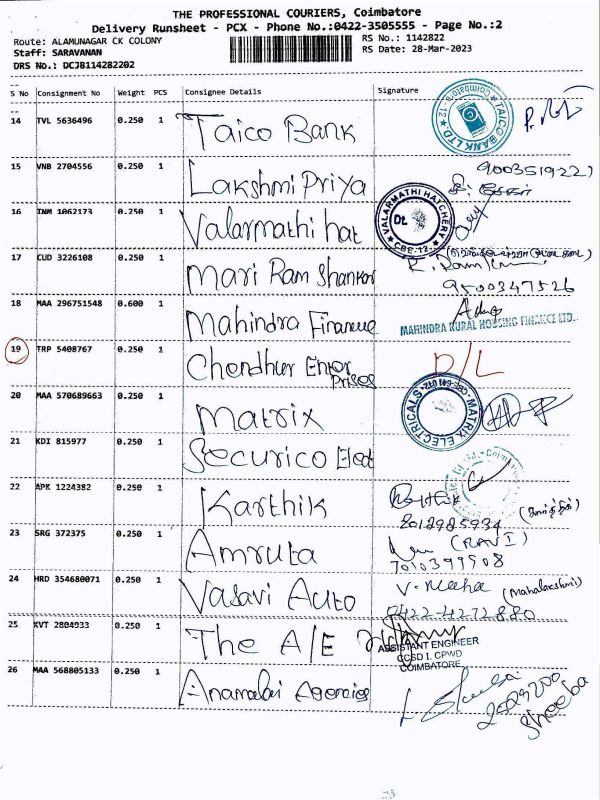 THE PROFESSIONAL COURIERS, Coimbatore
Delivery Runsheet - PCX - Phone No.:0422-3505555 - Page No.:2
Route: ALAMUNAGAR CK COLONY
RS No.: 1142822
Staff: SARAVANAN
RS Date: 28-Mar-2023
DRS No.: DCJB114282202
S No Consignment No Weight PCS Consignee Details Signature
14 TVL 5636496 0.250 1 Taico Bank
TAICO BANK LTD
15 VNB 2704556 0.250 1 Lakshmi Priya
16 TNM 1062173 0.250 1 Valarmathi hat
VALARMATHI HATCHERY CBE-12.
17 CUD 3226108 0.250 1 Mari Ram Shankar
9500347526
18 MAA 296751548 0.600 1 Mahindra Finance
MAHINDRA RURAL HOUSING FINANCE LTD.
19 TRP 5408767 0.250 1 Chendhur Enter
Prises
D/L
20 MAA 570689663 0.250 1 Matrix
MATRIX ELECTRICALS
21 KDI 815977 0.250 1 Securico Elect
22 APK 1224382 0.250 1 Karthik
(கார்த்திக்)
23 SRG 372375 0.250 1 Amruta
(RAVI)
7010399908
24 HRD 354680071 0.250 1 Vasavi Auto
(Mahalakshmi)
0422-4272880
25 KVT 2804933 0.250 1 The A/E
ASSISTANT ENGINEER
CCSD I. CPWD
COIMBATORE
26 MAA 568805133 0.250 1 Anamalai Agencies
Sheeba